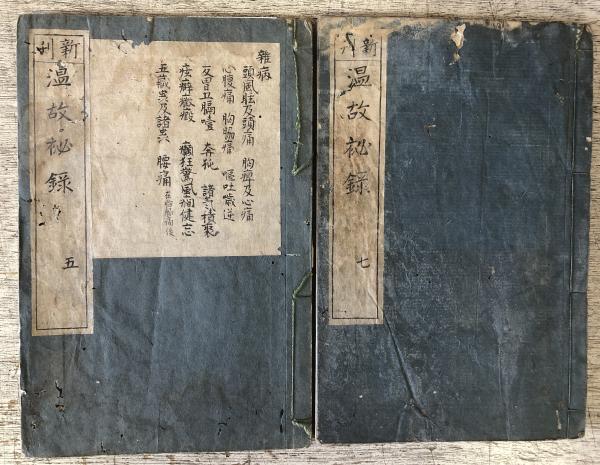 新刊
温故祕録
五
雜病
頭風眩及頭痛 胸痺及心痛
心腹痛 胸脇痛 嘔吐噦逆
反胃五膈噎 奔㹠 諸寺積聚
痃癖癥瘕 癲狂驚風癇健忘
五蔵虫及諸虫 腰痛
新刊
温故祕録
七